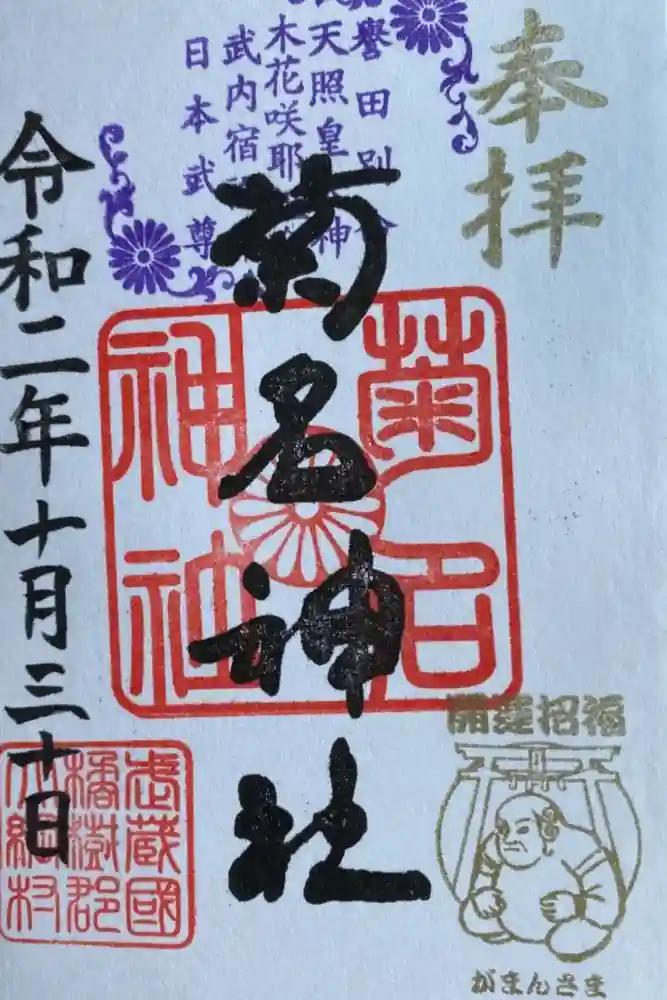 奉拝
譽田別命
天照皇大神
木花咲耶
武内宿
日本武尊
菊名神社
菊名
神社
令和二年十月三十日
武蔵國
橘樹郡
大綱村
開運招福
がまんさま